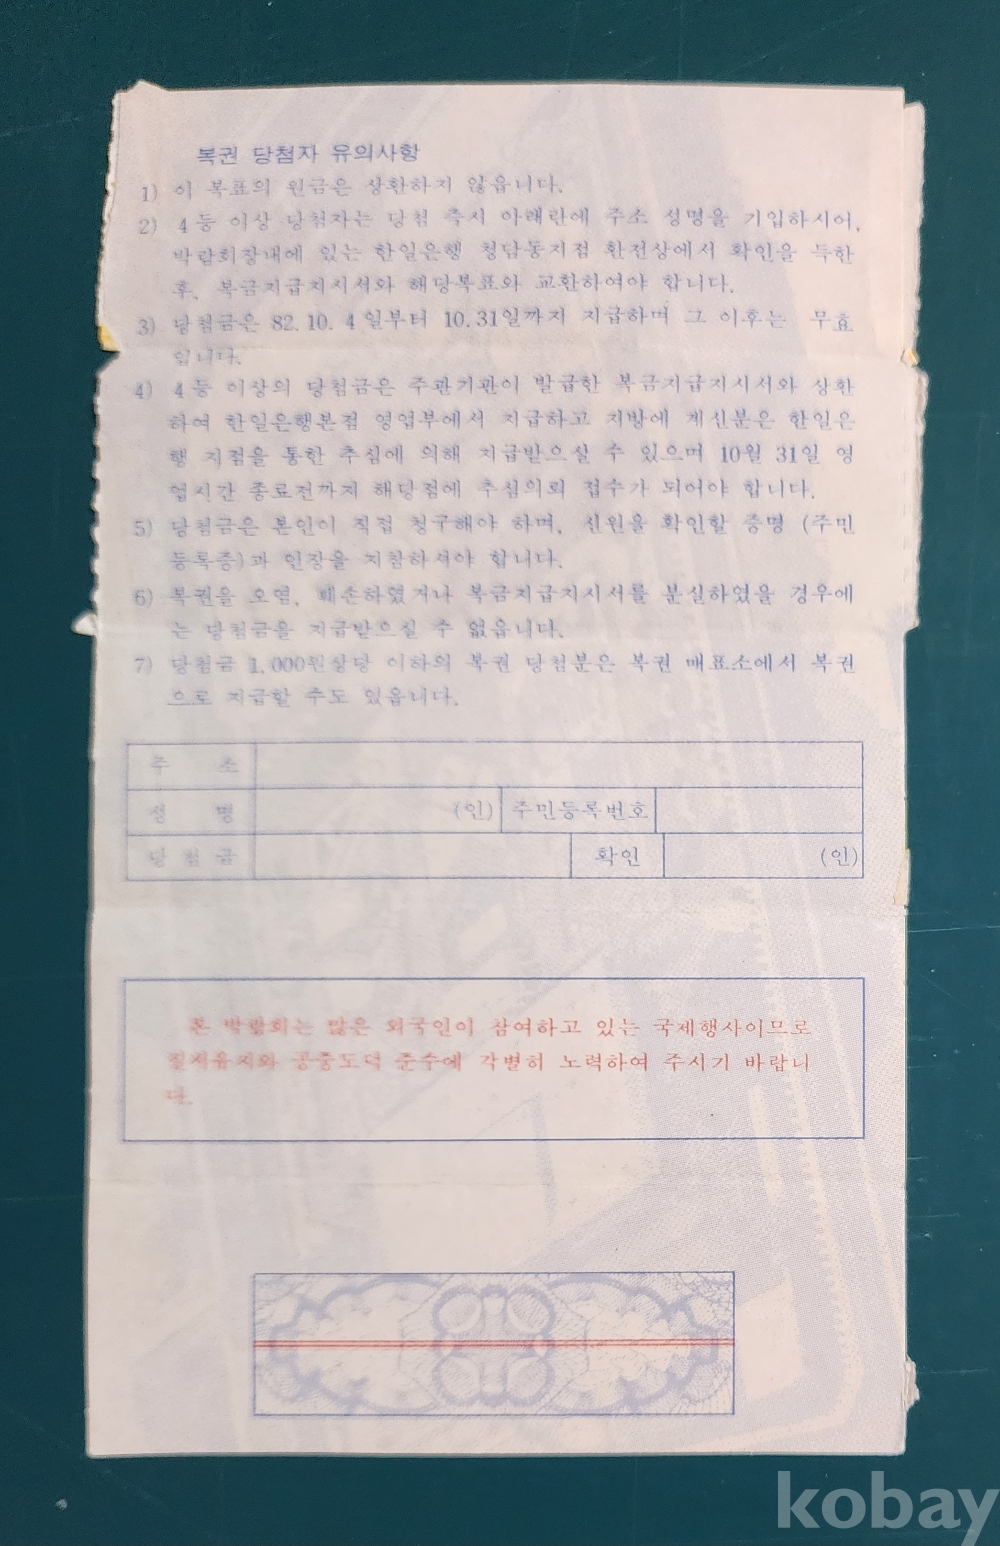 복권 당첨자 유의사항
1) 이 복표의 원금은 상환하지 않읍니다.
2) 4등 이상 당첨자는 당첨 즉시 아래란에 주소 성명을 기입하시어,
박람회장내에 있는 한일은행 청담동지점 환전상에서 확인을 득한
후, 복금지급지시서와 해당복표와 교환하여야 합니다.
3) 당첨금은 82. 10. 4일부터 10. 31일까지 지급하며 그 이후는 무효
입니다.
4) 4등 이상의 당첨금은 주관기관이 발급한 복금지급지시서와 상환
하여 한일은행본점 영업부에서 지급하고 지방에 계신분은 한일은
행 지점을 통한 추심에 의해 지급받으실 수 있으며 10월 31일 영
업시간 종료전까지 해당점에 추심의뢰 접수가 되어야 합니다.
5) 당첨금은 본인이 직접 청구해야 하며, 신원을 확인할 증명 (주민
등록증)과 인장을 지참하셔야 합니다.
6) 복권을 오염, 훼손하였거나 복금지급지시서를 분실하였을 경우에
는 당첨금을 지급받으실 수 없읍니다.
7) 당첨금 1,000원상당 이하의 복권 당첨분은 복권 매표소에서 복권
으로 지급할 수도 있읍니다.
주 소
성 명 (인) 주민등록번호
당첨금 확인 (인)
본 박람회는 많은 외국인이 참여하고 있는 국제행사이므로
질서유지와 공중도덕 준수에 각별히 노력하여 주시기 바랍니
다.
kobay